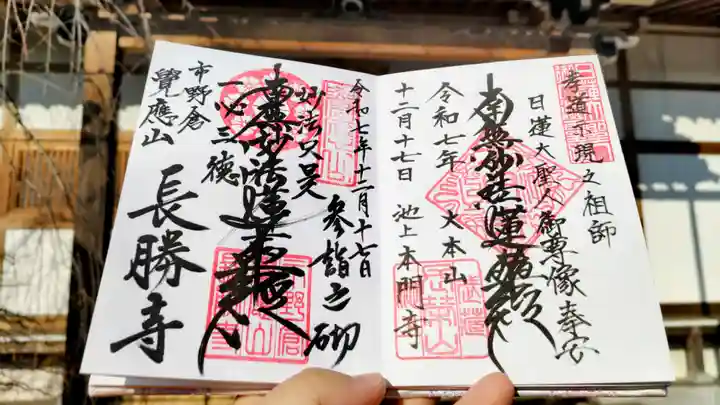 孝道示現之祖師
日蓮大聖人御尊像奉安
南無妙法蓮華経
大本山
池上本門寺
令和七年
十二月十七日
令和七年十二月十七日
参詣之砌
妙法只是
一心三徳
南無妙法蓮華経
市野倉
覺應山
長勝寺